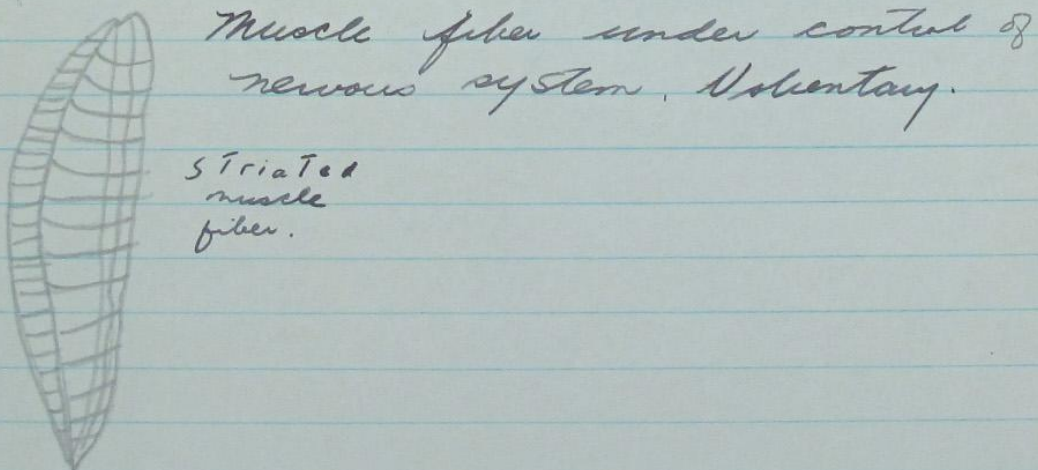 Muscle fiber under control of
nervous system. Voluntary.
striated
muscle
fiber.